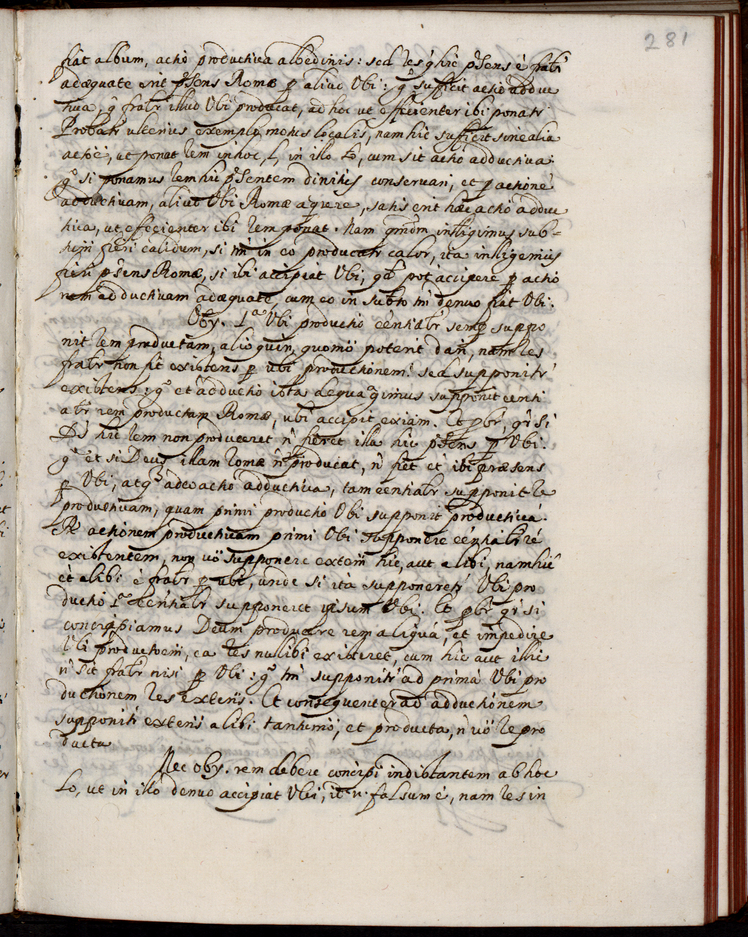 281
fiat album, actio productiva albedinis: sed res q̃ hic p̃sens è forłr
adæquate erit p̃sens Romæ p aliud Ubi: gº sufficit actio addue
tiva, q̃ forłr illud Ubi producat, ad hoc ut efficienter ibi ponatr
Probatr ulterius exemplo motus localis, nam hic sufficit sine alia
actiõe, ut ponat rem in hoc, l, in illo lo, cum sit actio adductiva:
gº si ponamus rem hic p̃sentem divinitus conservari, et p actionẽ
adductivam, aliud Ubi Romæ aquirere, satis erit hæc actio adduc
tiva, ut efficienter ibi rem ponat. nam qmdm intligimus sub-
tum fieri calidum, si tm in eo producatr calor, ita intligemus
fieri p̃sens Romæ, si ibi accipiat Ubi, qd pot accipere p actio
nem adductivam adæquate, cum eo in subto tm denuo fiat Ubi.
Oby. 1ª Ubi productio eentiałr semp suppo
nit rem productam, alioquin, quomº poterit dari, nam res
forłr non fit existens p ubi productionem: sed supponitr
existens: gº et adductio ista
abr rem productam Romæ, ubi accipit exiam. Et pbr, qr si
Ds hic rem non produceret ñ fieret illa hic p̃sens p Ubi:
gº et si Deus illam Romæ ñ producat, ñ fiet et ibi præsens
p Ubi, atqº adeo actio adductiva, tam eentiałr supponit re
productivam, quam primi productio Ubi supponit productivã.
R. actionem productivam primi Ubi supponere eentiałr rẽ
existentem, non vo supponere extem hic, aut alibi, nam hic
et alibi è forłr p ubi, unde si ita supponeretr Ubi pro
ductio 1ª eentiałr supponeret ipsum Ubi. Et pbr qr si
concipiamus Deum producere rem aliquã, et impedire
Ubi productioem, ea res nullibi existeret, cum hic aut illic
ñ sit forłr nisi p Ubi: gº tm supponitr ad primã Ubi pro
ductionem res extens. Et consequenter ad adductionem
supponitr extens alibi tantumº, et producta, ñ vo repro
ducta.
Nec oby. rem debere concipi indistantem ab hoc
lo, ut in illo denuo accipiat Ubi, id n. falsum è, nam res in